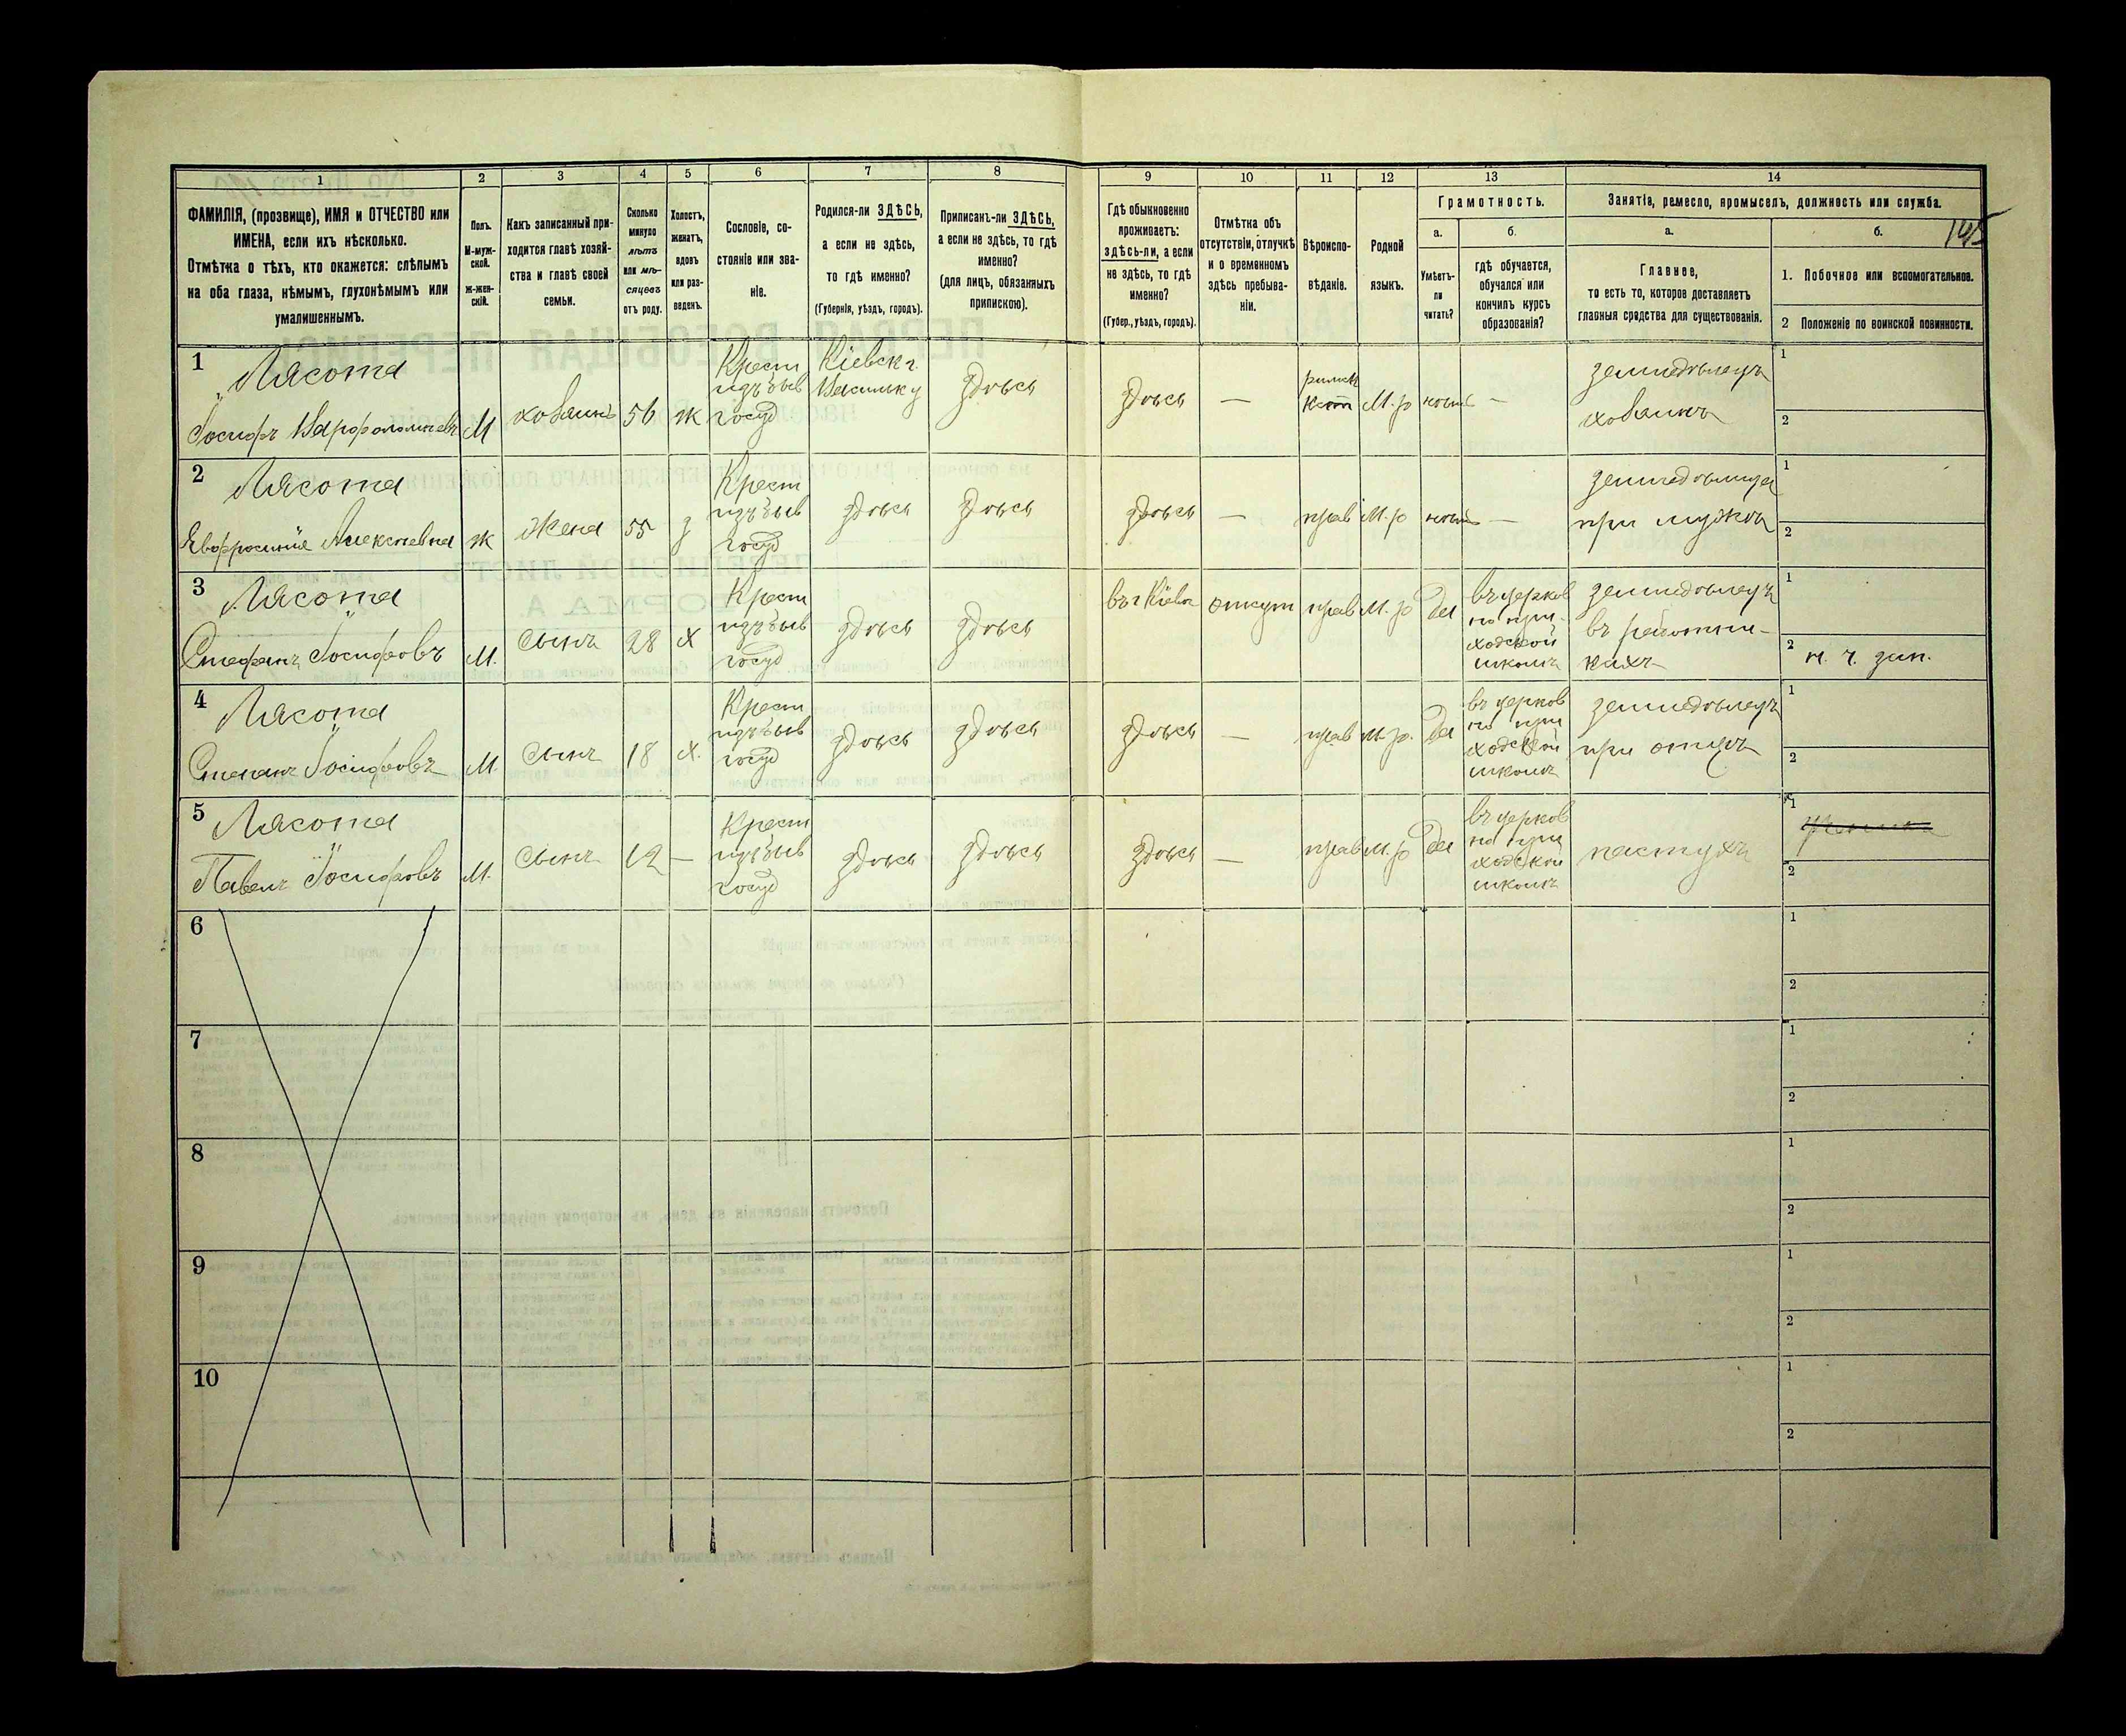 1
2
3
4
5
6
7
8
9
10
11
12
13
14
ФАМИЛІЯ, (прозвище), ИМЯ и ОТЧЕСТВО или
ИМЕНА, если ихъ нѣсколько.
Отмѣтка о тѣхъ, кто окажется: слѣпымъ
на оба глаза, нѣмымъ, глухонѣмымъ или
умалишеннымъ.
Полъ.
М-муж-
ской.
ж-жен-
скій.
Какъ записанный при-
ходится главѣ хозяй-
ства и главѣ своей
семьи.
Сколько
минуло
лѣтъ
или мѣ-
сяцевъ
отъ роду.
Холостъ,
женатъ,
вдовъ
или раз-
веденъ.
Сословіе, со-
стояніе или зва-
ніе.
Родился-ли ЗДѢСЬ,
а если не здѣсь,
то гдѣ именно?
(Губернія, уѣздъ, городъ).
Приписанъ-ли ЗДѢСЬ,
а если не здѣсь, то гдѣ
именно?
(для лицъ, обязанныхъ
припискою).
Гдѣ обыкновенно
проживаетъ:
здѣсь-ли, а если
не здѣсь, то гдѣ
именно?
(Губер., уѣздъ, городъ).
Отмѣтка объ
отсутствіи, отлучкѣ
и о временномъ
здѣсь пребыва-
ніи.
Вѣроиспо-
вѣданіе.
Родной
языкъ.
Грамотность.
а.
Умѣетъ-
ли
читать?
б.
гдѣ обучается,
обучался или
кончилъ курсъ
образованія?
Занятіе, ремесло, промыселъ, должность или служба.
145
а.
Главное,
то есть то, которое доставляетъ
главныя средства для существованія.
б.
1. Побочное или вспомогательное.
2 Положеніе по воинской повинности.
1 Лясота
Іосифъ Варфоломеевъ М хозяинъ 56 ж
Крест
изъ быв
госуд
Кіевск г.
Васильк у
здѣсь
здѣсь —
римск
кат
М.р нѣтъ —
земледѣлецъ
хозяинъ
1
2
2 Лясота
Евфросинія Алексѣевна ж жена 55 з
Крест
изъ быв
госуд
здѣсь здѣсь здѣсь — прав М.р нѣтъ —
земледѣлица
при мужѣ
1
2
3 Лясота
Стефанъ Іосифовъ М. Сынъ 28 х
Крест
изъ быв
госуд
здѣсь здѣсь въ г Кіевѣ отсут прав М.р Да
въ церков
но при-
ходской
школѣ
земледѣлецъ
въ работни-
кахъ
1
2 н. ч. зап.
4 Лясота
Степанъ Іосифовъ М. Сынъ 18 х.
Крест
изъ быв
госуд
здѣсь здѣсь здѣсь — прав М.р. Да
въ церков
но при
ходской
школѣ
земледѣлецъ
при отцѣ
1
2
5 Лясота
Павелъ Іосифовъ М. Сынъ 12 —
Крест
изъ быв
госуд
здѣсь здѣсь здѣсь — прав М.р Да
въ церков
но при
ходской
школѣ
пастухъ
1
2
6
1
2
7
1
2
8
1
2
9
1
2
10
1
2